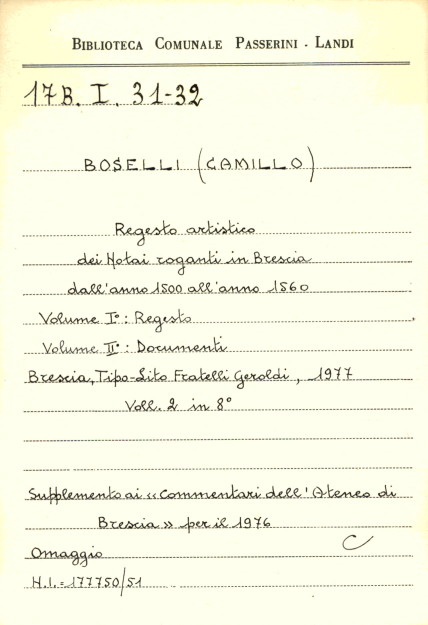 BIBLIOTECA COMUNALE PASSERINI - LANDI
17B. I. 31-32
BOSELLI (CAMILLO)
Regesto artistico
dei Notai roganti in Brescia
dall'anno 1500 all'anno 1560
Volume I°: Regesto
Volume II°: Documenti
Brescia, Tipo-Lito Fratelli Geroldi, 1977
Voll. 2 in 8°
Supplemento ai «Commentari dell'Ateneo di
Brescia» per il 1976
C
Omaggio
N.I. = 177750/51